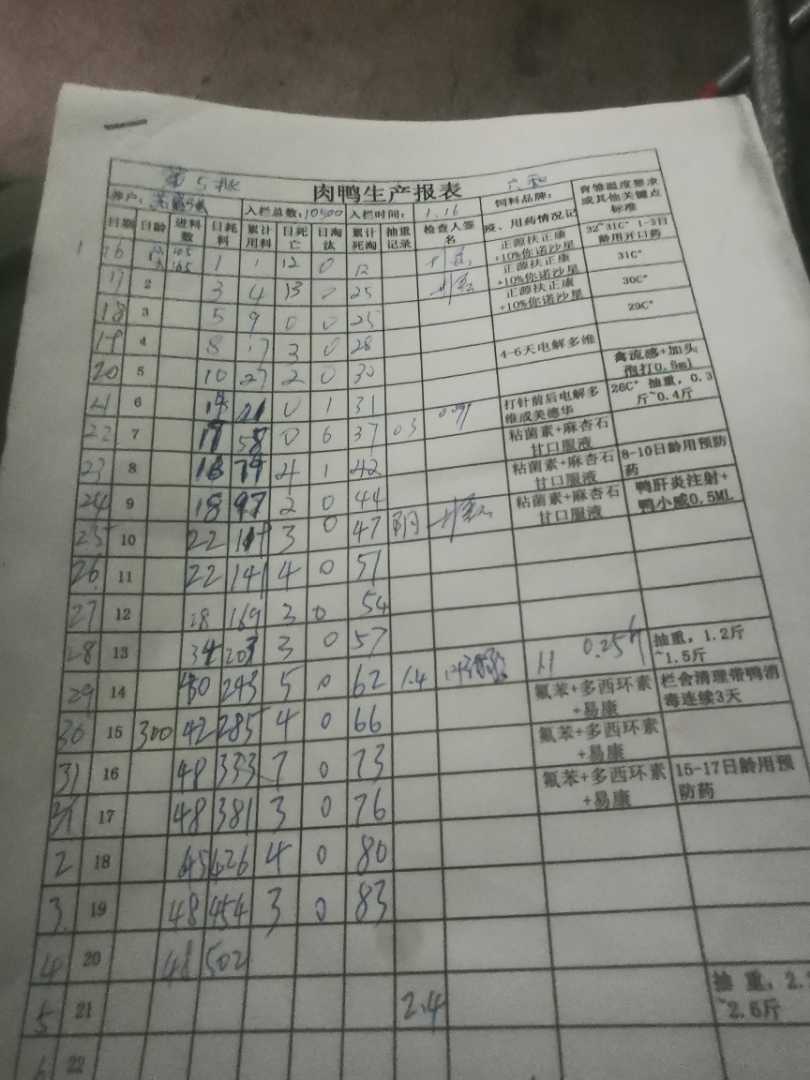 第5批 肉鸭生产报表 六和
养户: 入栏总数:10500 入栏时间: 1.16 饲料品牌: 育雏温度要求或其他关键点标准
日期 日龄 进料数 日耗料 累计用料 日死亡 日淘汰 累计死淘 抽重记录 检查人签名 疫、用药情况记
16 1 1 12 0 12 正源扶正康+10%你诺沙星 32~31C° 1-3日龄用开口药
17 2 3 4 13 0 25 正源扶正康+10%你诺沙星 31C°
18 3 5 9 0 0 25 正源扶正康+10%你诺沙星 30C°
19 4 8 17 3 0 28 29C°
20 5 10 27 2 0 30 4-6天电解多维
21 6 0 1 31 禽流感+加头孢打0.5ml
22 7 58 0 6 37 03 打针前后电解多维或美德华 26C° 抽重,0.3斤~0.4斤
23 8 4 1 42 粘菌素+麻杏石甘口服液
24 9 18 97 2 0 44 粘菌素+麻杏石甘口服液 8-10日龄用预防药
25 10 22 3 0 47 粘菌素+麻杏石甘口服液 鸭肝炎注射+鸭小感0.5ML
26 11 22 141 4 0 51
27 12 28 169 3 0 54
28 13 34 203 3 0 57
29 14 40 243 5 0 62 1.4 1.1 0.25 抽重,1.2斤~1.5斤
30 15 300 42 285 4 0 66 氟苯+多西环素+易康 栏舍清理带鸭消毒连续3天
31 16 48 333 7 0 73 氟苯+多西环素+易康
17 48 381 3 0 76 氟苯+多西环素+易康 15-17日龄用预防药
2 18 45 426 4 0 80
3 19 48 454 3 0 83
4 20 48 502
5 21 2.4 抽重,2.
~2.6斤
6 22